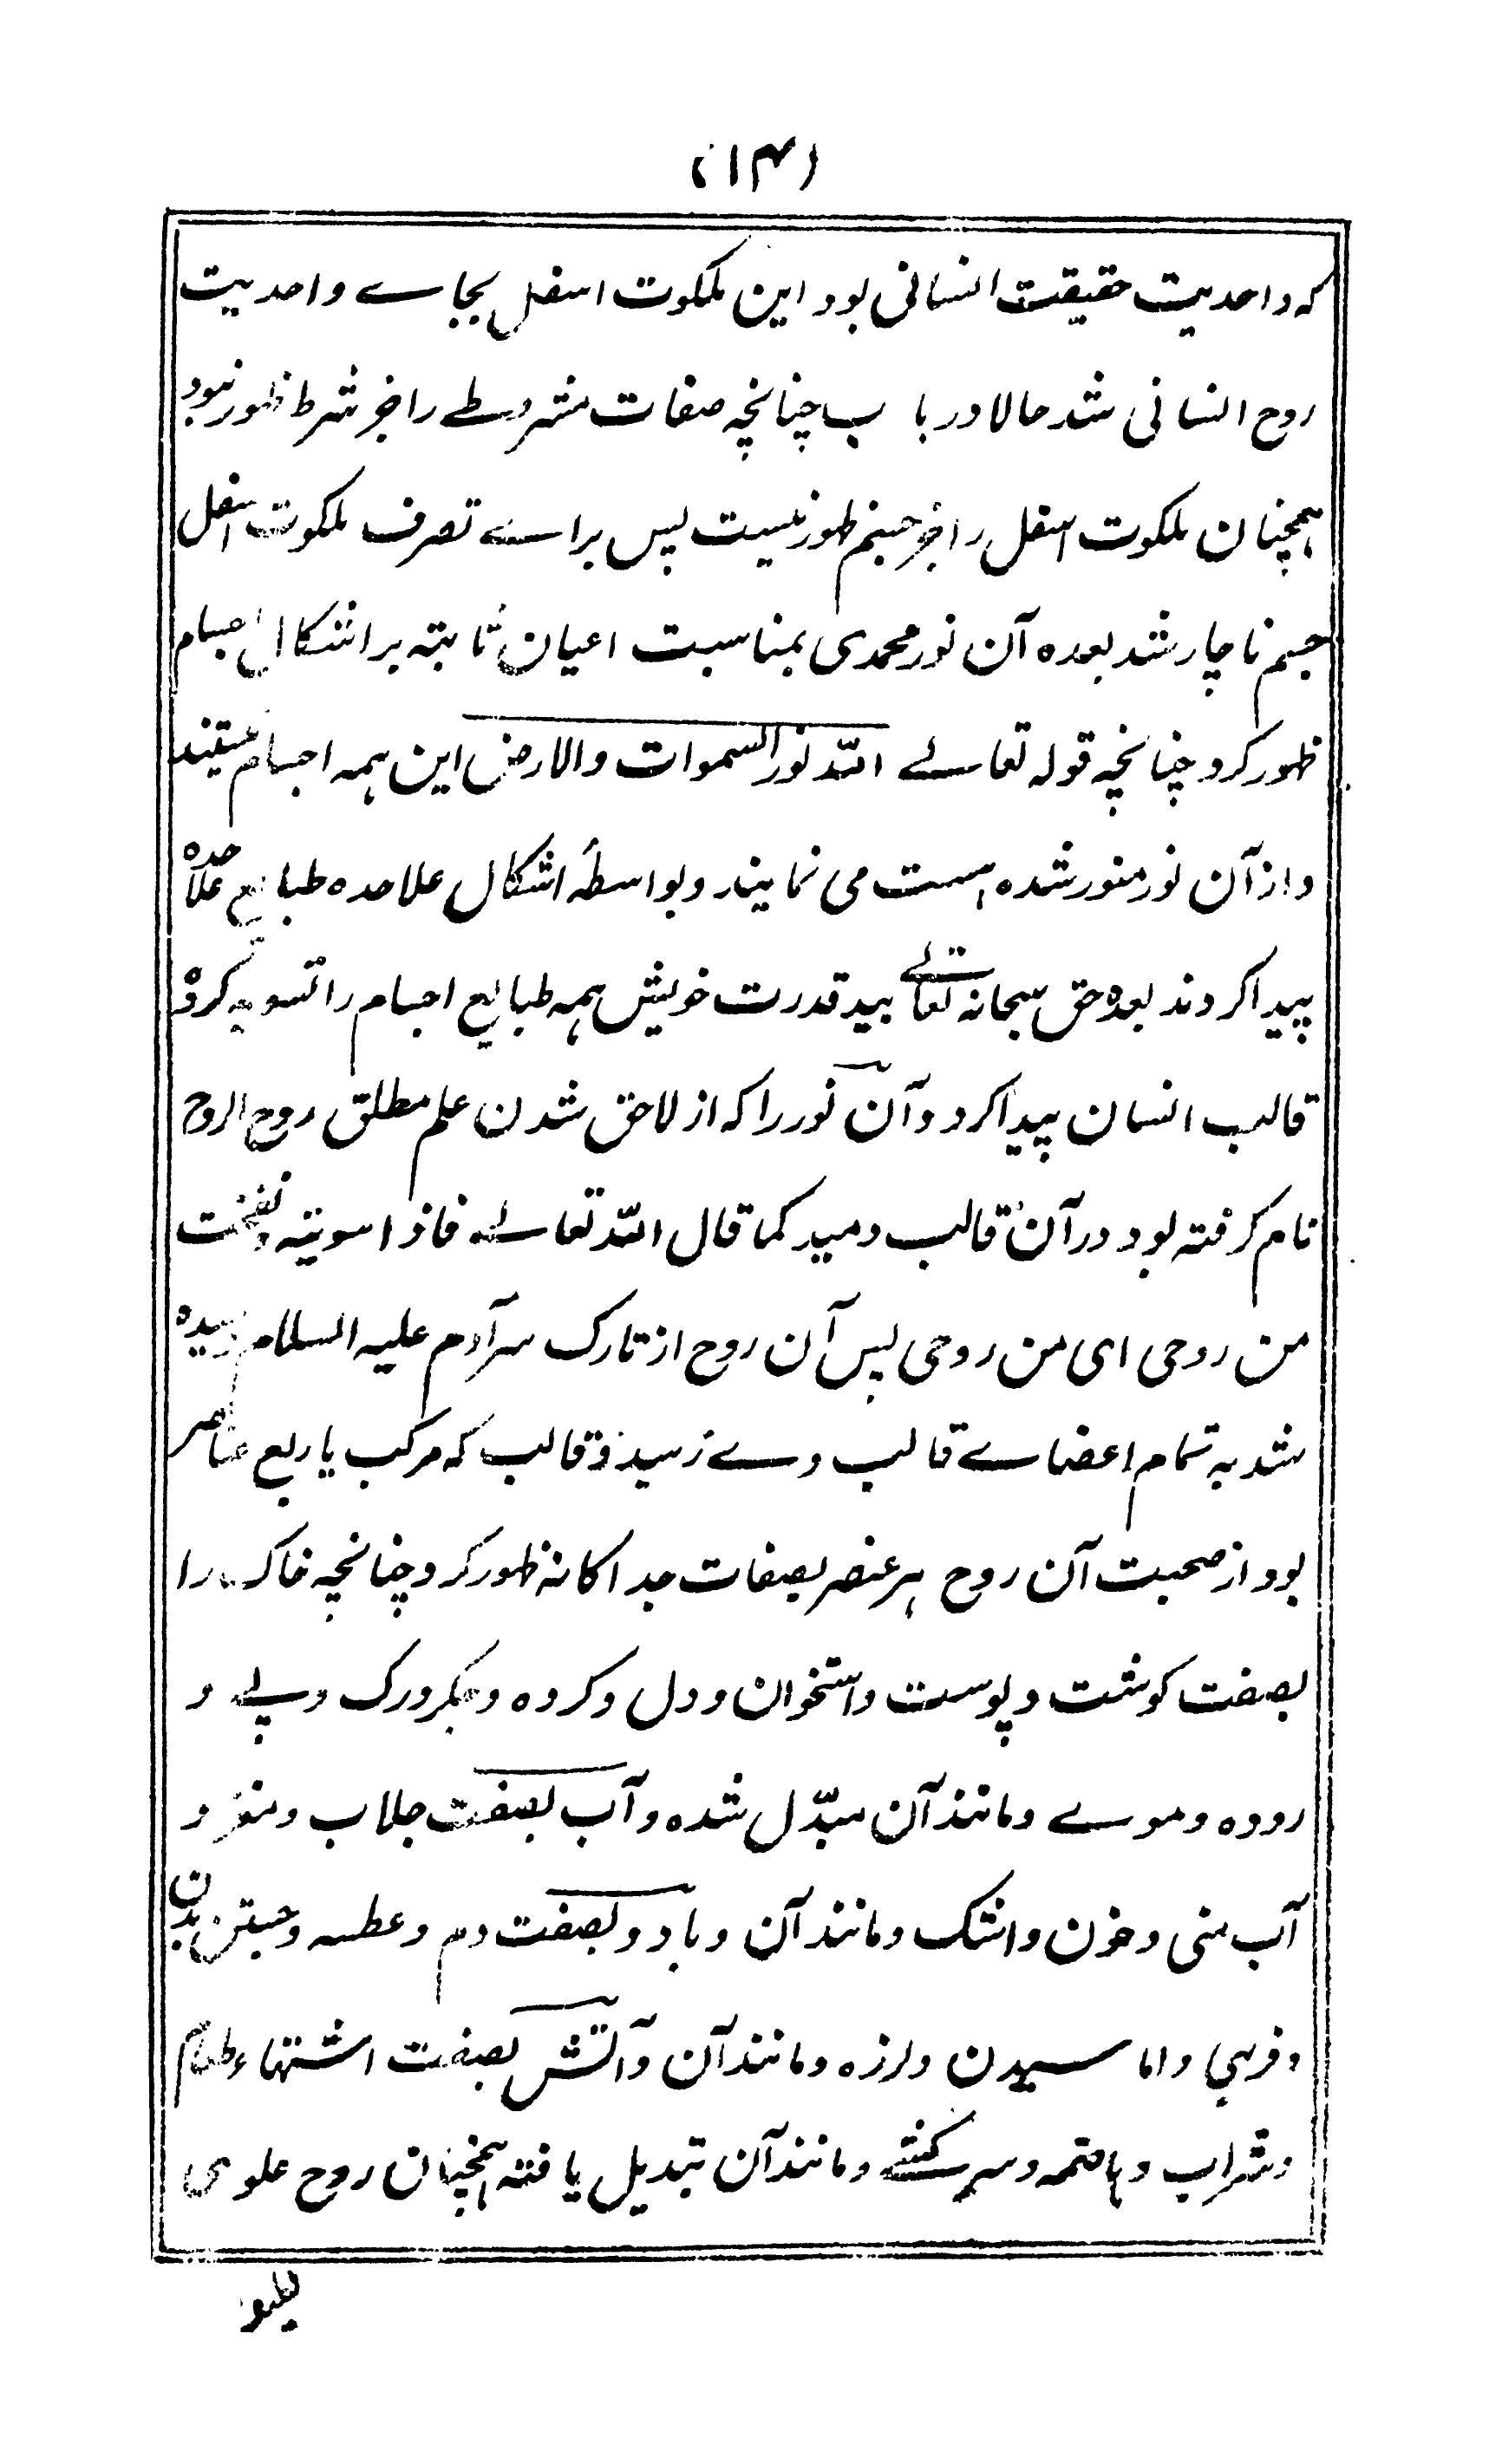 (۱۴)
که واحدیت حقیقت انسانی بود این ملکوت اسفل بجاے واحدیت
روح انسانی شد حالا دریاب چنانچه صفات مشروطے را جز شرط ظهور نبود
همچنان ملکوت اسفل را جز جسم ظهور نیست پس براے تصرف ملکوت اسفل
جسم ناچار شد بعده آن نور محمدی بمناسبت اعیان ثابته بر اشکال اجسام
ظهور کرد چنانچه قوله تعالے الله نور السموات والارض این همه اجسام هستند
و از آن نور منور شده است می نمایند و بواسطهٔ اشکال علاحده طبایع علاحده
پیدا کردند بعده حق سبحانه تعالے بید قدرت خویش همه طبایع اجسام را تسویه کرده
قالب انسان پیدا کرد و آن نور را که از لاحق شدن علم مطلق روح الروح
نام گرفته بود در آن قالب دمید کما قال الله تعالے فاذا سویته و نفخت
من روحی ای من روحی پس آن روح از تارک سر آدم علیه السلام
شد به تمام اعضاے قالب وے رسید و قالب که مرکب یاربع عناصر
بود از صحبت آن روح هر عنصر بصفات جداگانه ظهور کرد چنانچه خاک را
بصفت گوشت و پوست و استخوان و دل و گرده و جگر و رگ و پے و
روده و موے و مانند آن مبدّل شده و آب بصفت جلاب و مغز و
آب منی و خون و اشک و مانند آن و باد و بصفت دم و عطسه و جستن بدن
و فربهی و اماسیدن و لرزه و مانند آن و آتش بصفت اشتهاء طعام
و شراب و هاضمه و سرکشے و مانند آن تبدیل یافته همچنان روح علوی